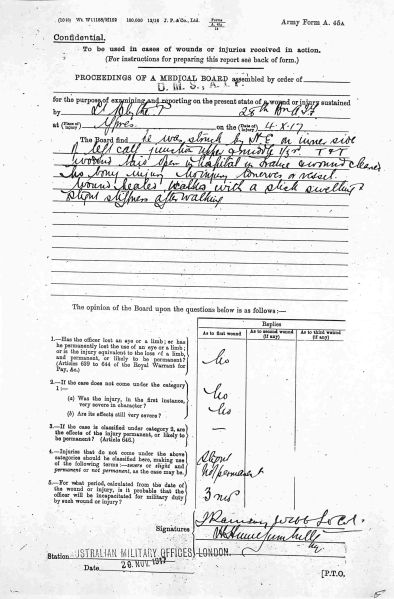 (2010) Wt. W11166/M159 100,000 12/16 J. P. & Co., Ltd. Forms A. 45A
Army Form A. 45A
Confidential.
To be used in cases of wounds or injuries received in action.
(For instructions for preparing this report see back of form.)
PROCEEDINGS OF A MEDICAL BOARD assembled by order of
D. M. S., A. I. F.
for the purpose of examining and reporting on the present state of a wound or injury sustained
by Lt 28th Bn A.I.F
at (Place of injury) Ypres on the (Date of injury) 4.X.17
The Board find he was struck by H.E on inner side
of left calf junction upper & middle 1/3rd. T & T
wound laid open in hospital in wound cleaned
No bony injury No injury to nerves or vessel.
Wound healed, walks with a stick swelling &
slight stiffness after walking
The opinion of the Board upon the questions below is as follows:—
Replies
As to first wound
As to second wound (if any)
As to third wound (if any)
1.—Has the officer lost an eye or a limb; or has he permanently lost the use of an eye or a limb; or is the injury equivalent to the loss of a limb, and permanent, or likely to be permanent? (Articles 639 to 644 of the Royal Warrant for Pay, &c.)
No
2.—If the case does not under the category 1:—
(a) Was the injury, in the first instance, very severe in character?
No
(b) Are its effects still very severe?
No
3.—If the case is classified under category 2, are the effects of the injury permanent, or likely to be permanent? (Article 646.)
—
4.—Injuries that do not come under the above categories should be classified here, making use of the following terms:—severe or slight and permanent or not permanent, as the case may be.
Slight
Not permanent
5.—For what period, calculated from the date of the wound or injury, is it probable that the officer will be incapacitated for military duty by such wound or injury?
3 mos
Signatures
Station AUSTRALIAN MILITARY OFFICES LONDON.
Date 28. NOV. 1917
[P.T.O.